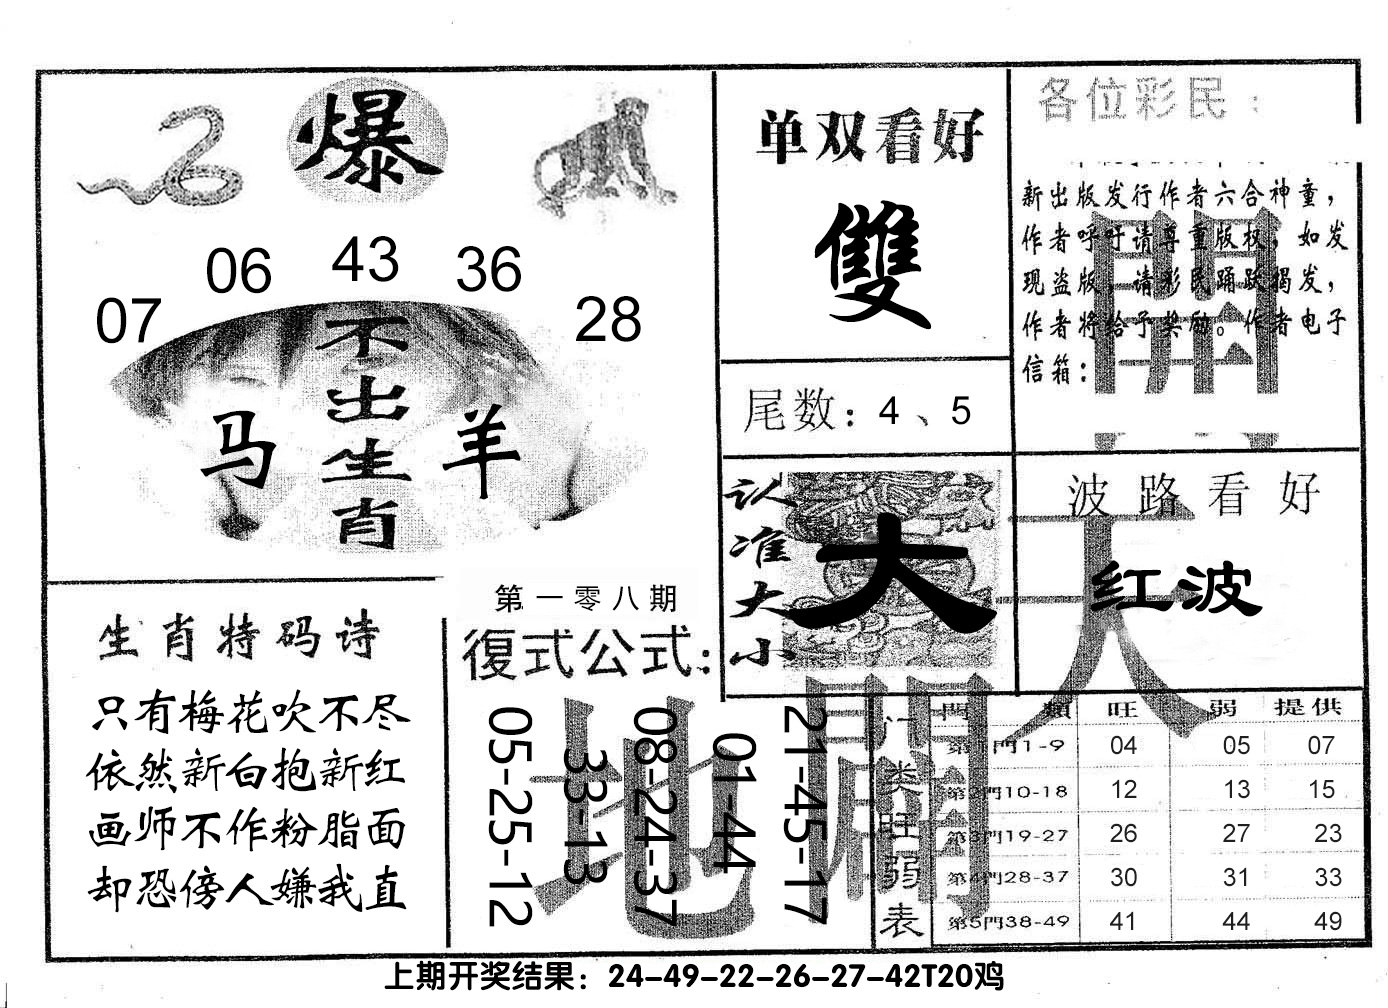 爆
07
06
43
36
28
不出生肖
马
羊
单双看好
雙
尾数：4、5
各位彩民：
新出版发行作者六合神童，
作者呼吁请尊重版权，如发
现盗版，请彩民踊跃揭发，
作者将给予奖励。作者电子
信箱：
認准大小
大
波路看好
红波
生肖特码诗
只有梅花吹不尽
依然新白抱新红
画师不作粉脂面
却恐傍人嫌我直
第一零八期
復式公式：
05-25-12
33-13
08-24-37
01-44
21-45-17
天
地
開
門类旺弱表
門 類 旺 弱 提供
第1門1-9 04 05 07
第2門10-18 12 13 15
第3門19-27 26 27 23
第4門28-37 30 31 33
第5門38-49 41 44 49
上期开奖结果：24-49-22-26-27-42T20鸡